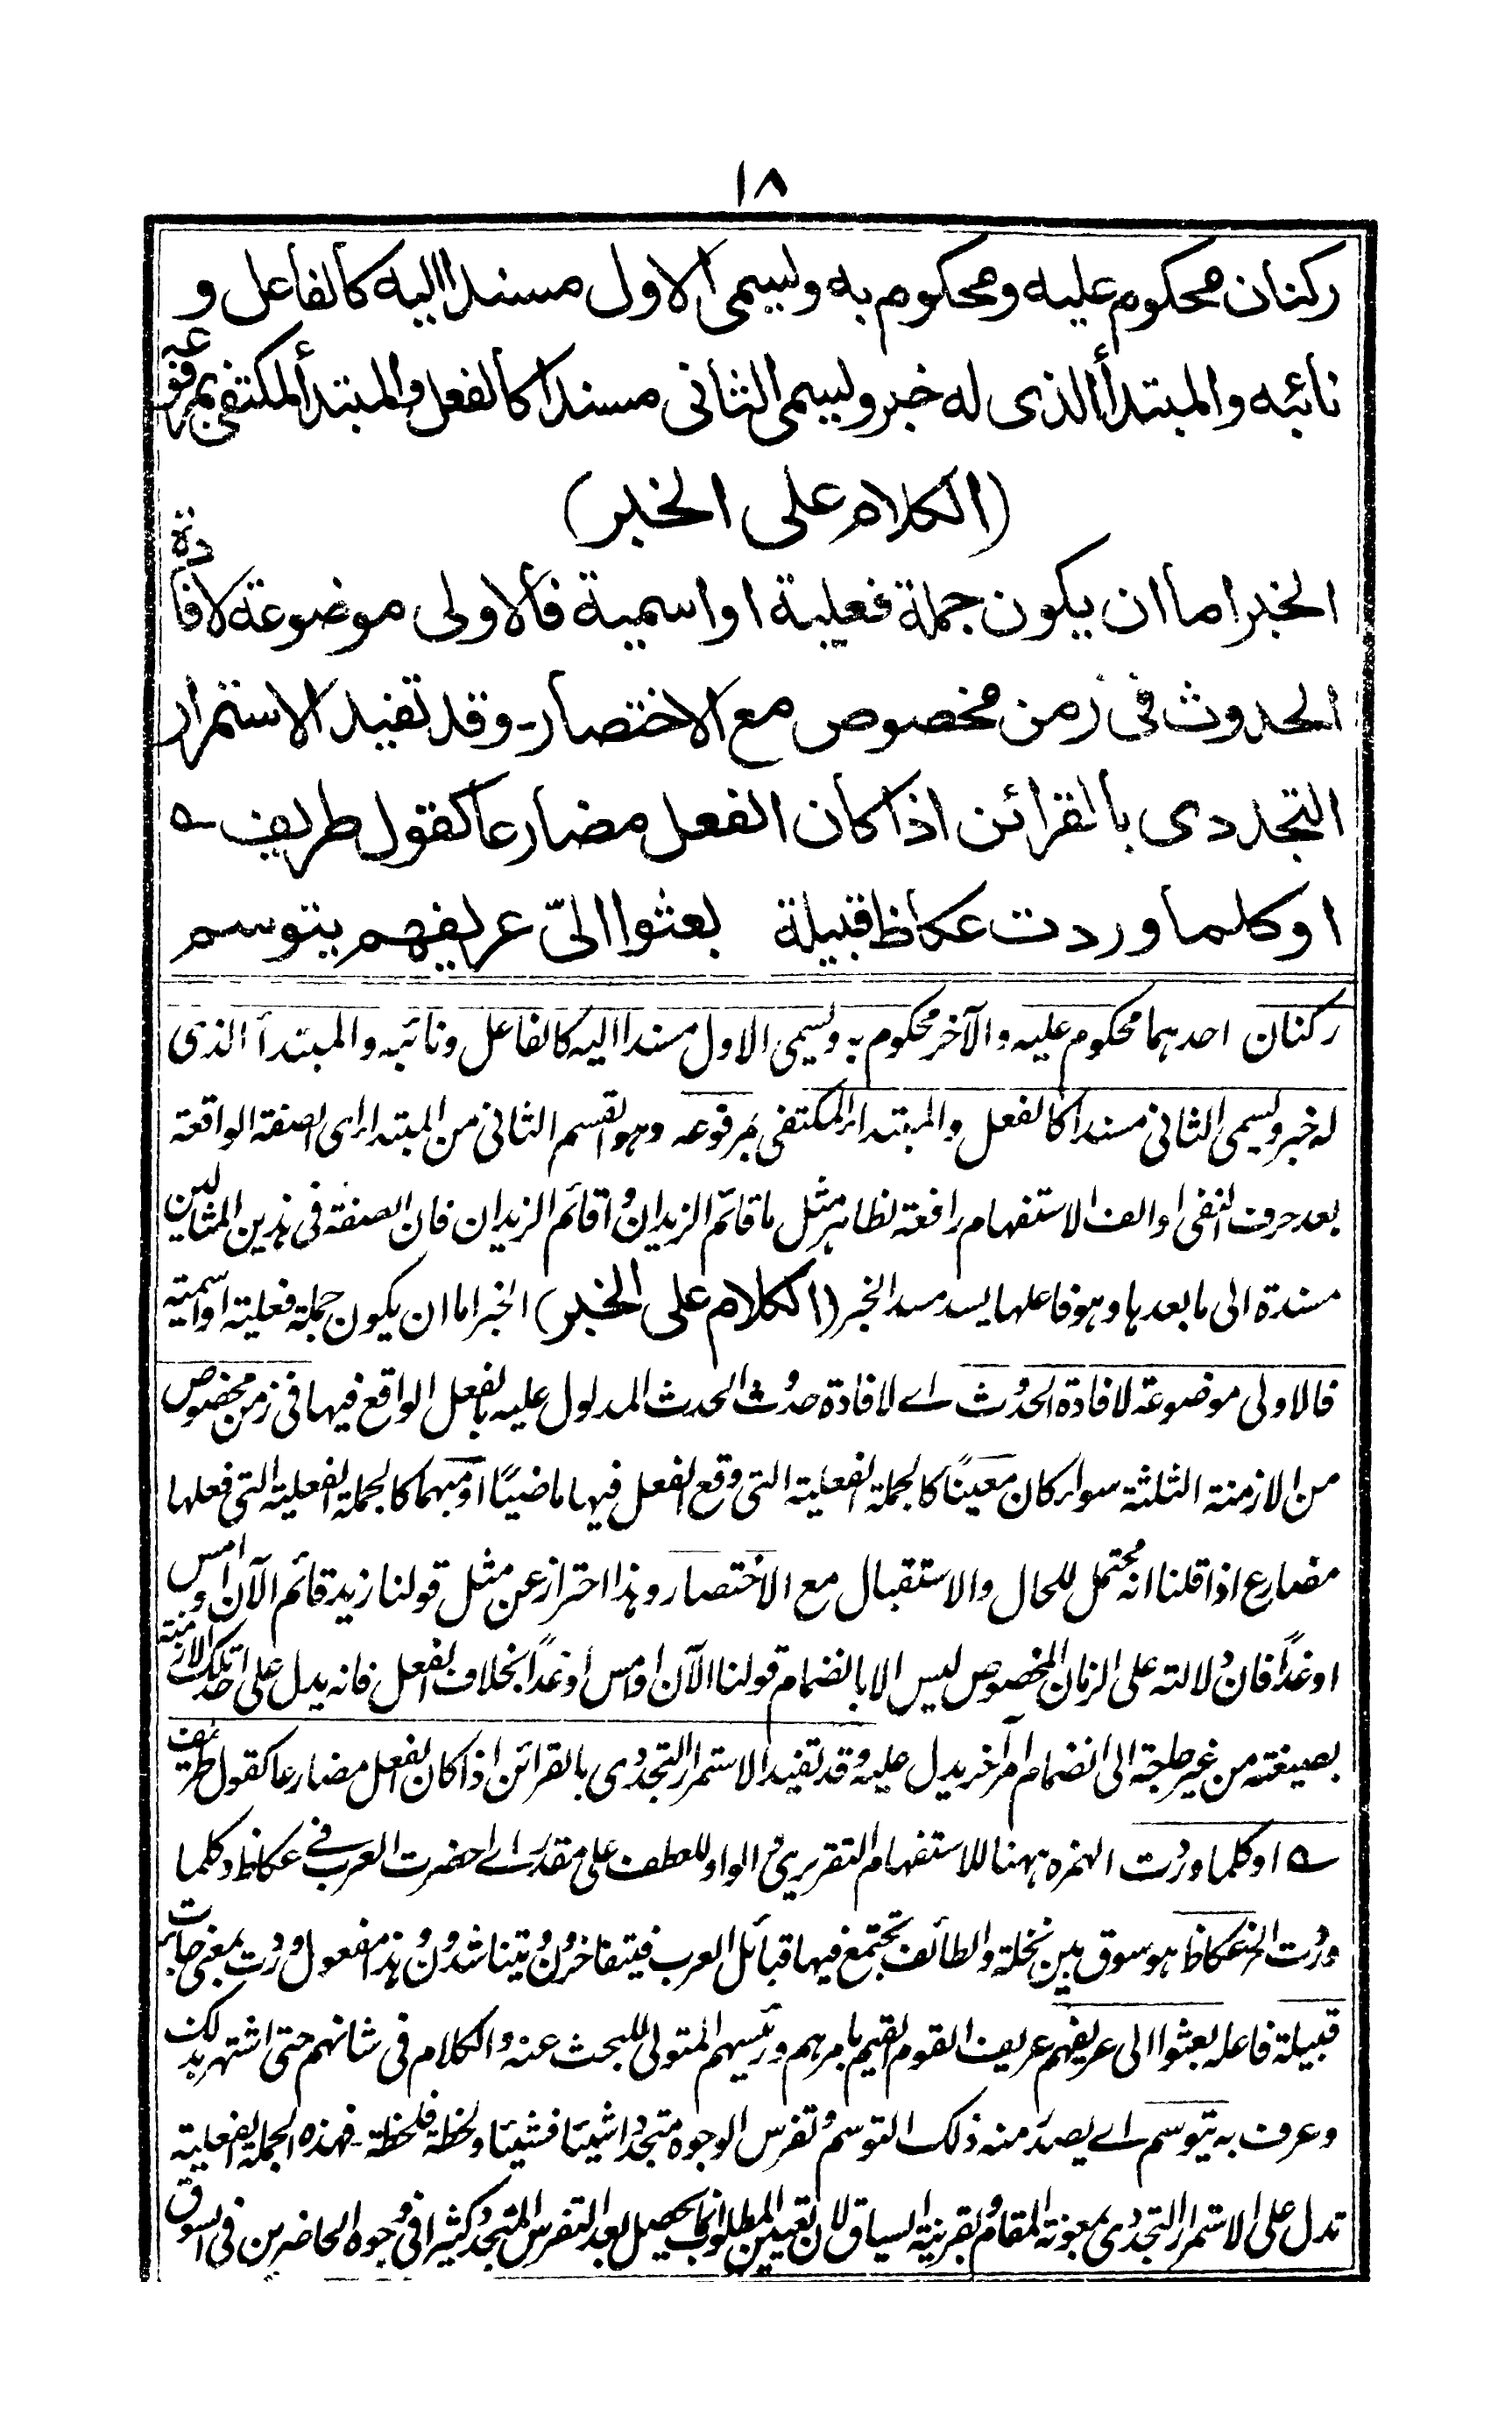 ١٨
ركنان محكوم عليه ومحكوم به ويسمى الاول مسندا اليه كالفاعل و
نائبه والمبتدأ الذى له خبر ويسمى الثانى مسندا كالفعل والمبتدأ المكتفى بمرفوعه
(الكلام على الخبر)
الخبر اما ان يكون جملة فعلية او اسمية فالاولى موضوعة لافادة
الحدوث فى زمن مخصوص مع الاختصار- وقد تفيد الاستمرار
التجددى بالقرائن اذا كان الفعل مضارعا كقول طريف ـه
اوكلما وردت عكاظ قبيلة بعثوا الىّ عريفهم يتوسم
ركنان احدهما محكوم عليه والآخر محكوم به ويسمى الاول مسندا اليه كالفاعل ونائبه والمبتدأ الذى
له خبر ويسمى الثانى مسندا كالفعل والمبتداء المكتفى بمرفوعه وهو القسم الثانى من المبتداء اى الصفة الواقعة
بعد حرف النفى او الف الاستفهام رافعة لظاهر مثل ما قائم الزيدان واقائم الزيدان فان الصفة فى هذين المثالين
مسندة الى ما بعدها وهو فاعلها يسد مسد الخبر (الكلام على الخبر) الخبر اما ان يكون جملة فعلية او اسمية
فالاولى موضوعة لافادة الحدوث اے لافادة حدوث الحدث المدلول عليه بالفعل الواقع فيها فى زمن مخصوص
من الازمنة الثلثة سواء كان معينًا كالجملة الفعلية التى وقع الفعل فيها ماضيًا او مبهما كالجملة الفعلية التى فعلها
مضارع اذا قلنا انه محتمل للحال والاستقبال مع الاختصار وهذا احتراز عن مثل قولنا زيد قائم الآن او امس
او غدًا فان دلالته على الزمان المخصوص ليس الا بانضمام قولنا الآن او امس او غدًا بخلاف الفعل فانه يدل على احد تلك الازمنة
بصيغته من غير حاجة الى انضمام امر آخر يدل عليه وقد تفيد الاستمرار التجددى بالقرائن اذا كان الفعل مضارعا كقول طريف
ـه اوكلما وردت الهمزه ههنا للاستفهام التقريرى والواو للعطف على مقدر اے احضرت العرب فے عكاظ وكلما
وردت الخ عكاظ هو سوق بين نخلة والطائف تجتمع فيها قبائل العرب فيتفاخرون ويتناشدون هذا مفعول وردت بمعنى جاءت
قبيلة فاعله بعثوا الى عريفهم عريف القوم القيم بامرهم ورئيسهم المتولى للبحث عنه والكلام فى شانهم حتى اشتهر بذلك
وعرف به يتوسم اے يصدر منه ذلك التوسم وتفرس الوجوه متجددا شيئا فشيئا ولحظة فلحظة- فهذه الجملة الفعلية
تدل على الاستمرار التجددى بمعونة المقام وبقرينة السياق لان تعيين المطلوب انما يحصل بعد التفرس المتجدد كثيرا فى وجوه الحاضرين فى السوق